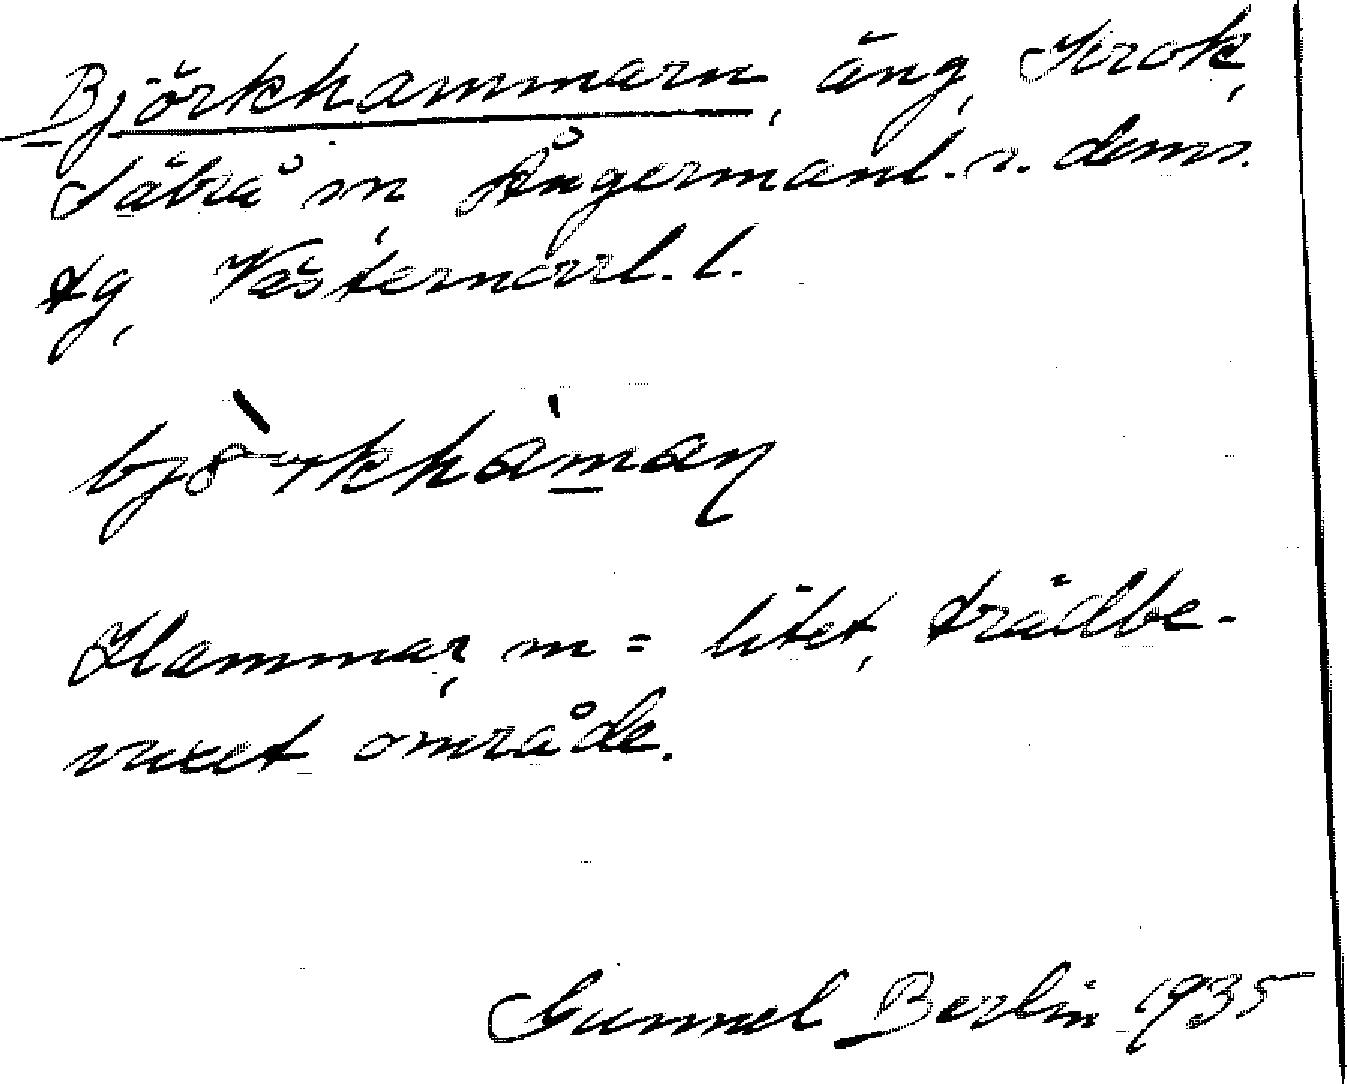 Björkhammarn, äng, Krok,
Säbrå sn, Ångermanl. s. doms.
tg, Västernorrl. l.
bjö̀rkhàman
Hammar, m = litet, trädbe-
vuxet område.
Gunnel Berlin 1935